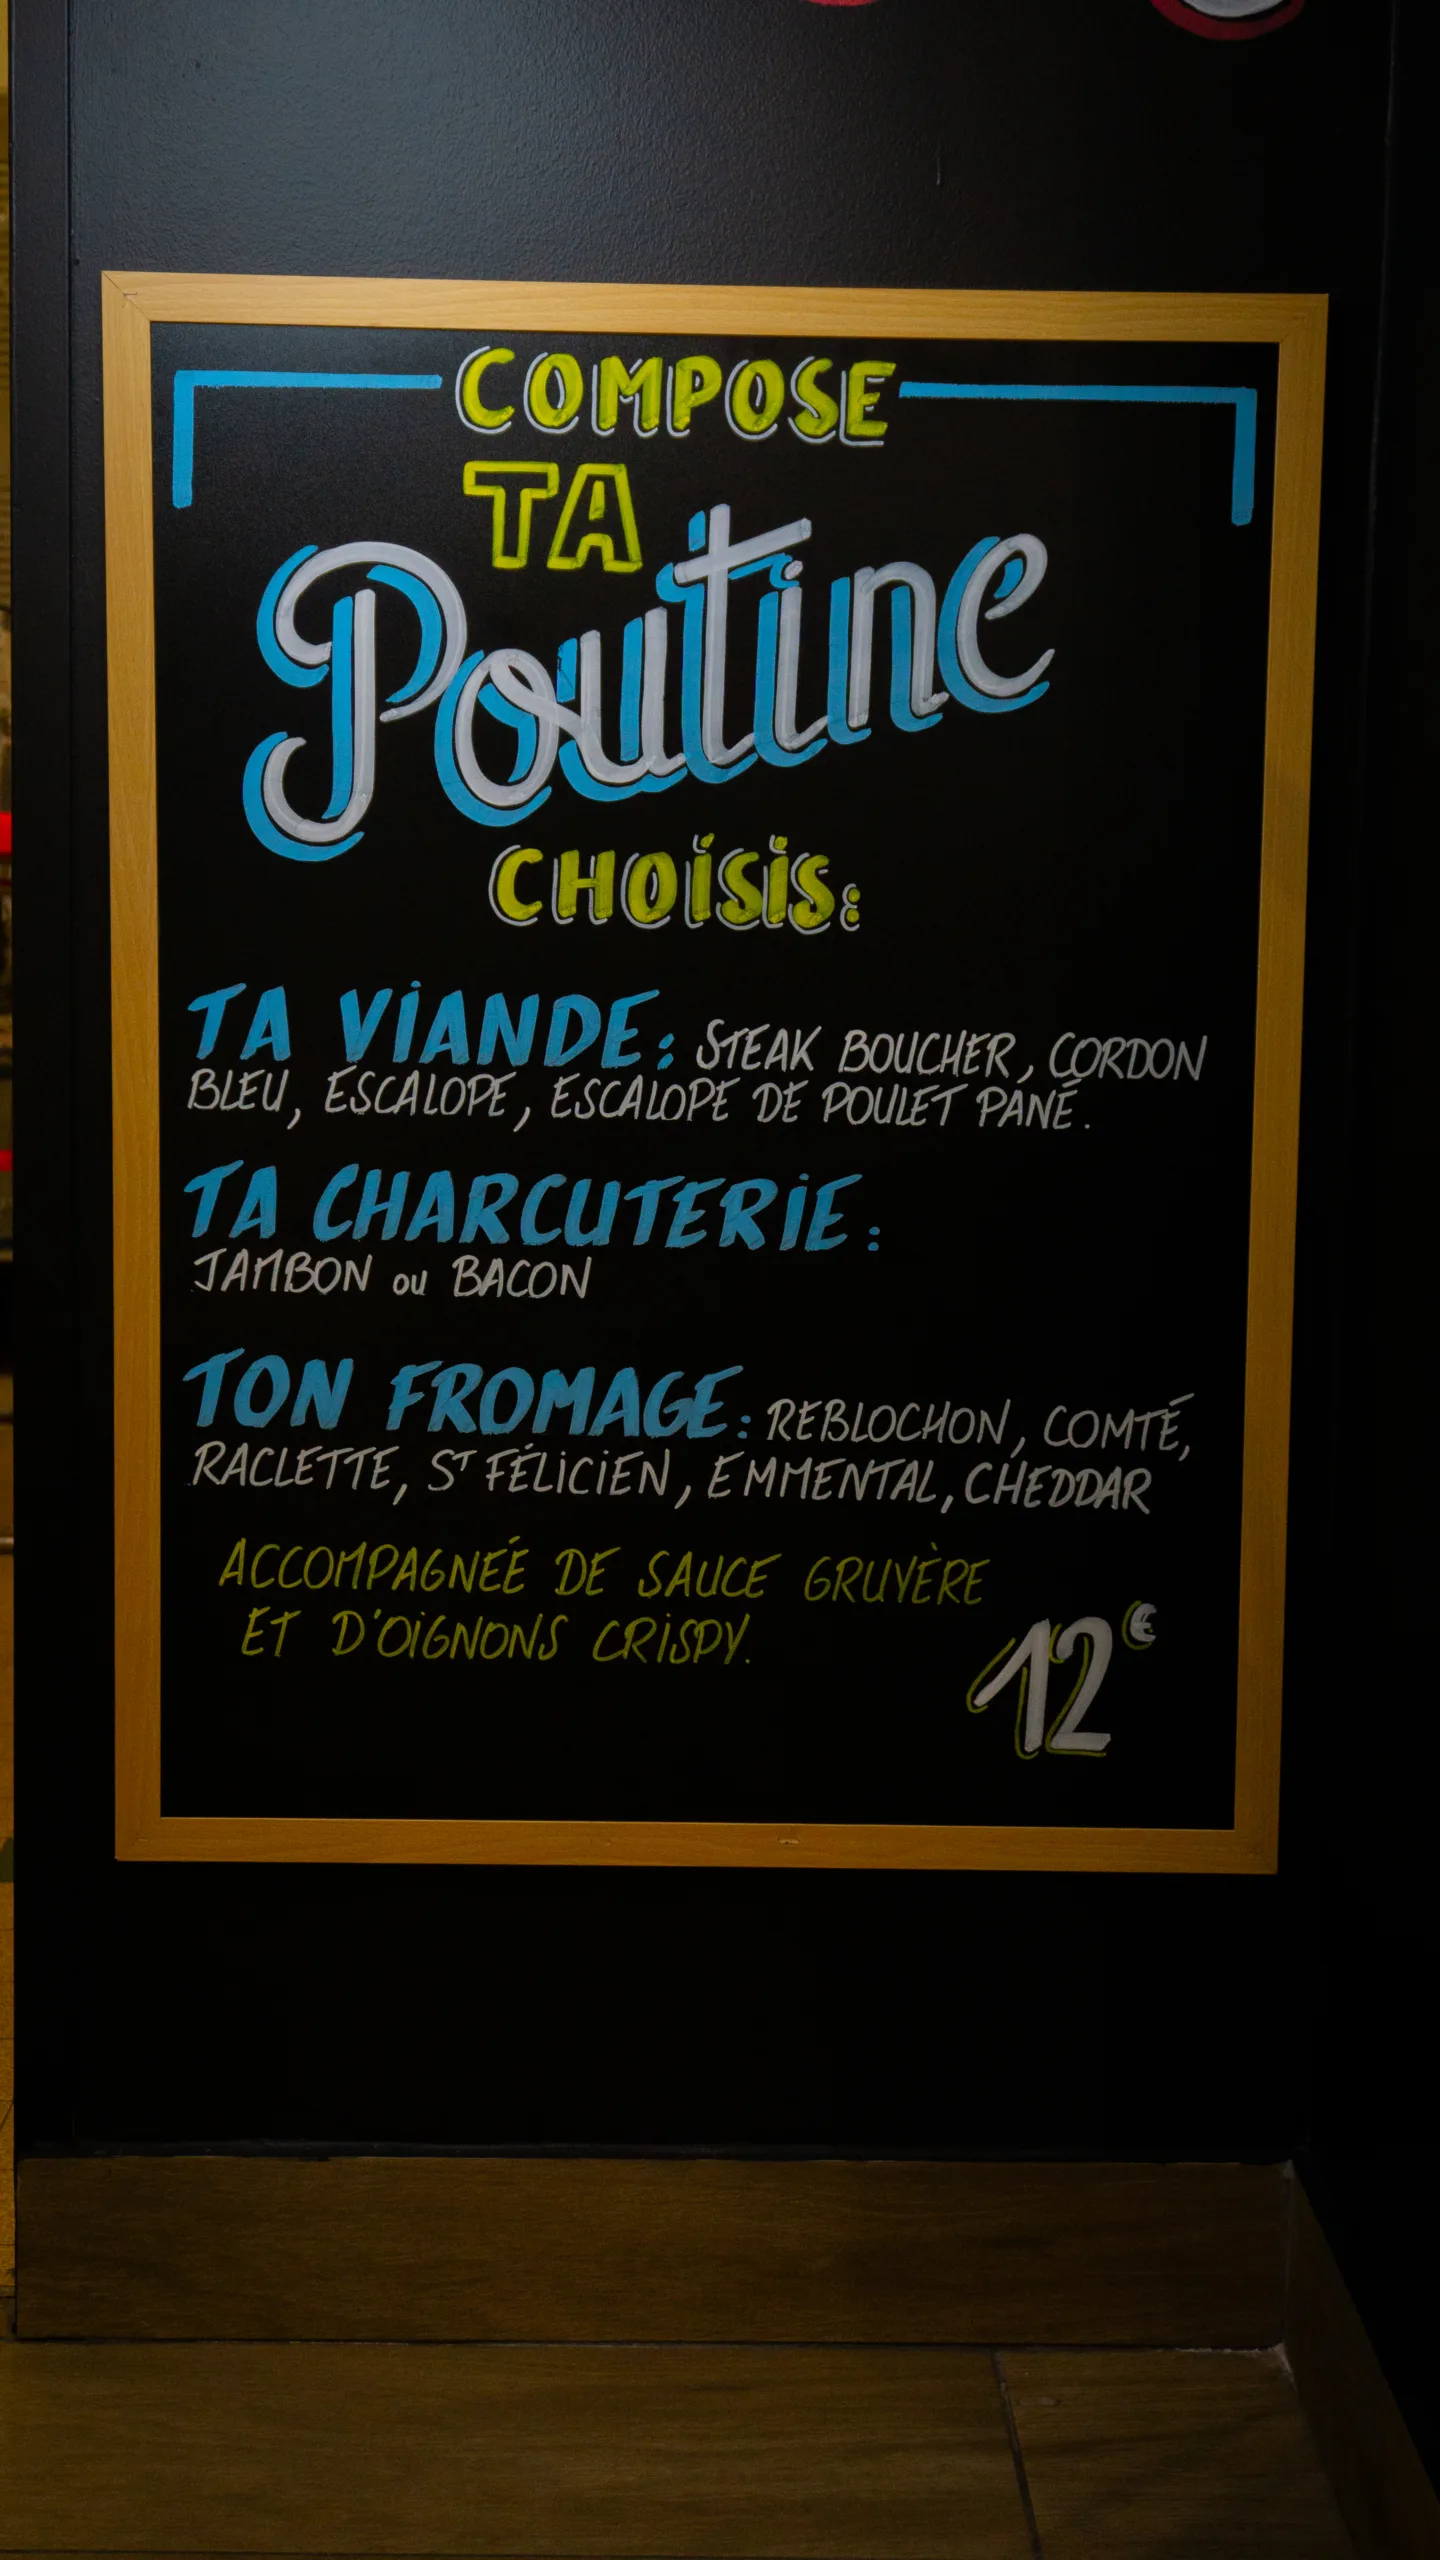 COMPOSE
TA
Poutine
CHOISIS:
TA VIANDE: STEAK BOUCHER, CORDON
BLEU, ESCALOPE, ESCALOPE DE POULET PANÉ.
TA CHARCUTERIE:
JAMBON ou BACON
TON FROMAGE: REBLOCHON, COMTÉ,
RACLETTE, ST FÉLICIEN, EMMENTAL, CHEDDAR
ACCOMPAGNÉE DE SAUCE GRUYÈRE
ET D'OIGNONS CRISPY.
12€